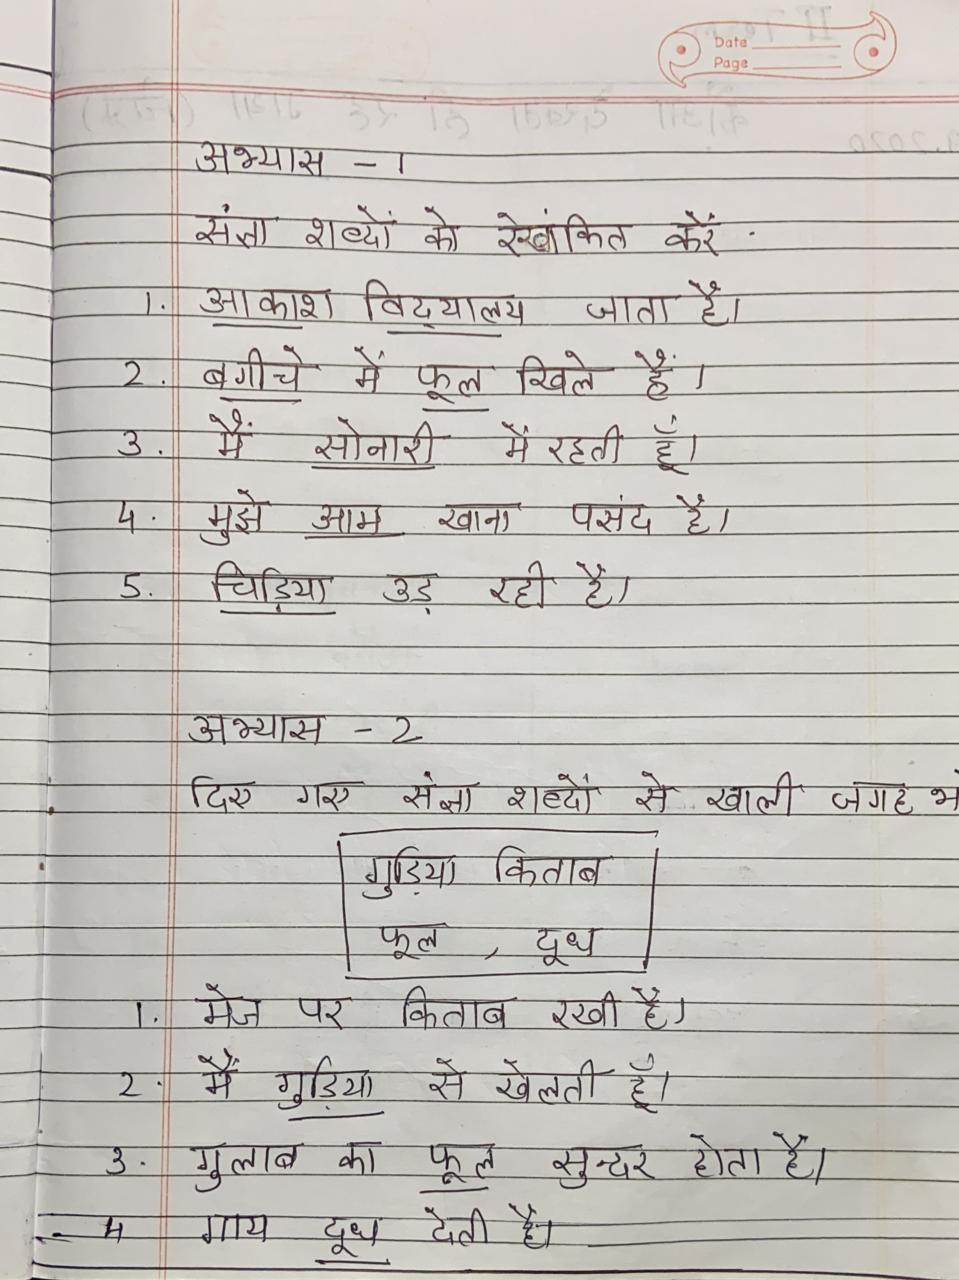 Date
Page
अभ्यास - 1
संज्ञा शब्दों को रेखांकित करें .
1. आकाश विद्यालय जाता है।
2. बगीचे में फूल खिले हैं।
3. मैं सोनारी में रहती हूँ।
4. मुझे आम खाना पसंद है।
5. चिड़िया उड़ रही है।
अभ्यास - 2
दिए गए संज्ञा शब्दों से खाली जगह
गुड़िया किताब
फूल , दूध
1. मेज पर किताब रखी है।
2. मैं गुड़िया से खेलती हूँ।
3. गुलाब का फूल सुन्दर होता है।
4 गाय दूध देती है।